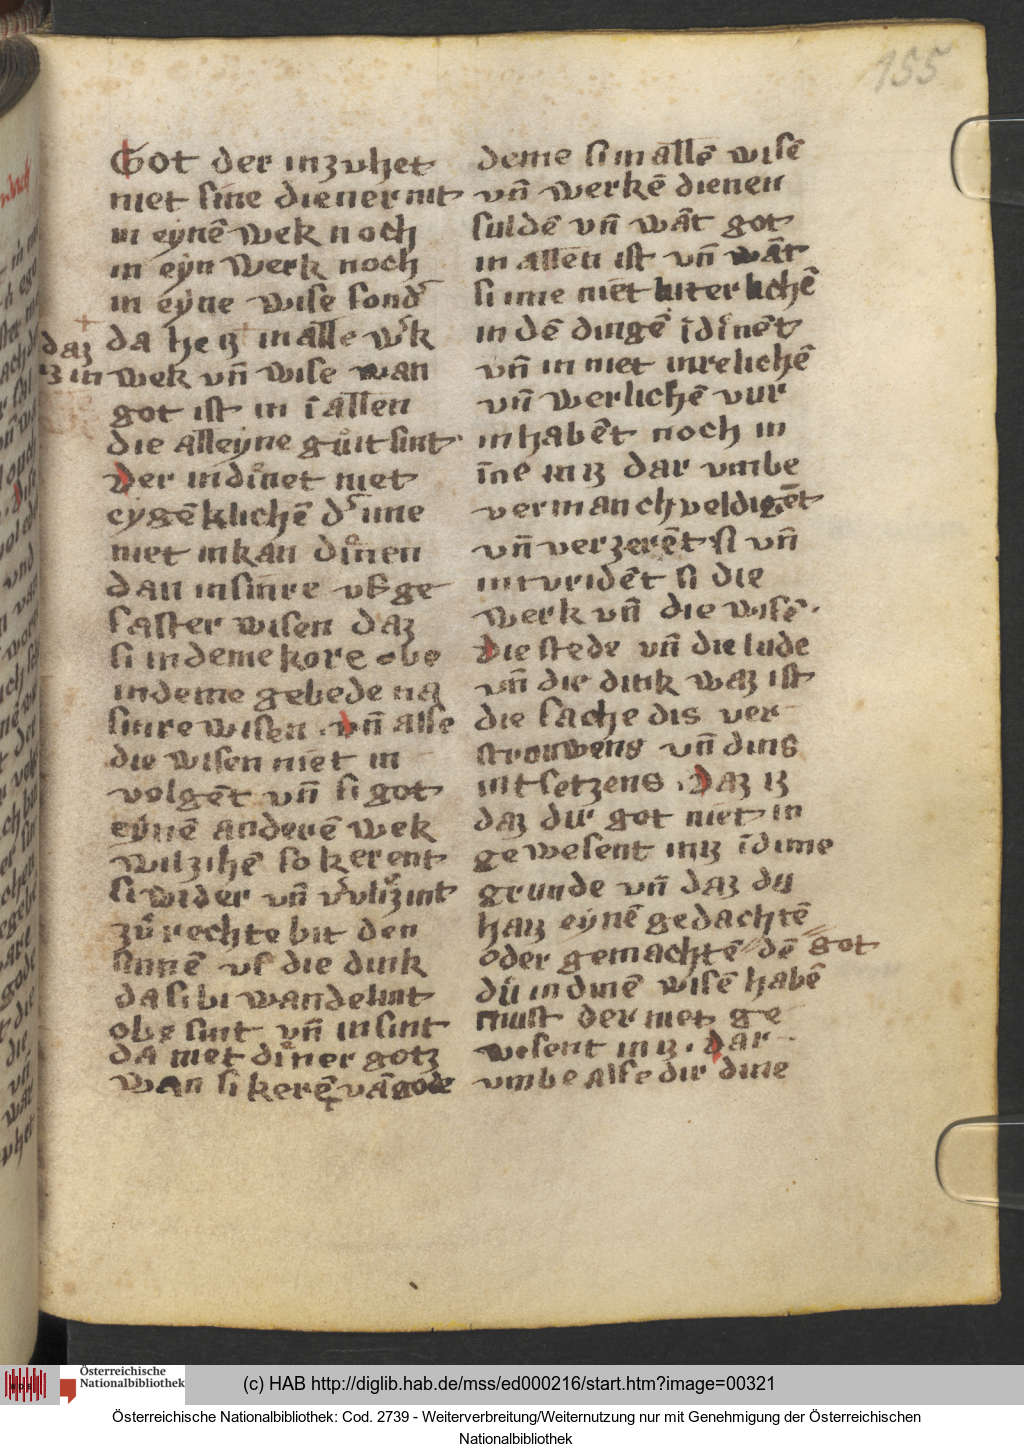 155
Got der inzuhet
niet sine diener nit
in eynē wek noch
in eyn werk noch
in eyne wise sond̄
da he iz in alle wˀk
daz
iz in
wek vn̄ wise wan
got ist in ī allen
die alleyne gůit sint
der indinet niet
eygēklichē dˀ ime
niet inkan dinen
dan in sinre vf ge
saster wisen daz
si in deme kore obe
in deme gebede na
sinre wisen . vn̄ alse
die wisen niet in
volgēt vn̄ si got
eynē anderē wek
wilzihē so kerent
si wider vn̄
zů rechte bit den
sinnē vf die dink
da si bi wandelint
obe sint vn̄ insint
da niet diner gotz
wan si kerē vā gode
deme si in allē wisē
vn̄ werkē dienen
suldē vn̄ wāt got
in allen ist vn̄ wāt
si ime niet luterlichē
in dē dingē ī dinēt
vn̄ in niet inrelichē
vn̄ werlichē vur
inhabēt noch in
īne in iz dar vmbe
vermanchveldigēt
vn̄ verzerēt si vn̄
intvridēt si die
werk vn̄ die wisē .
die stede vn̄ die lude
vn̄ die dink waz ist
die sache dis ver
strouwens vn̄ dins
intsetzens . daz iz
daz dir got niet in
gewesent in iz ī dime
grunde vn̄ daz du
haiz eynē gedachtē
oder gemachtē dē got
dů in dinē wisē habē
muist der niet ge
wesent in iz . dar
vmbe alse dir dine
Österreichische
Nationalbibliothek
(c) HAB http://diglib.hab.de/mss/ed000216/start.htm?image=00321
Österreichische Nationalbibliothek: Cod. 2739 - Weiterverbreitung/Weiternutzung nur mit Genehmigung der Österreichischen
Nationalbibliothek